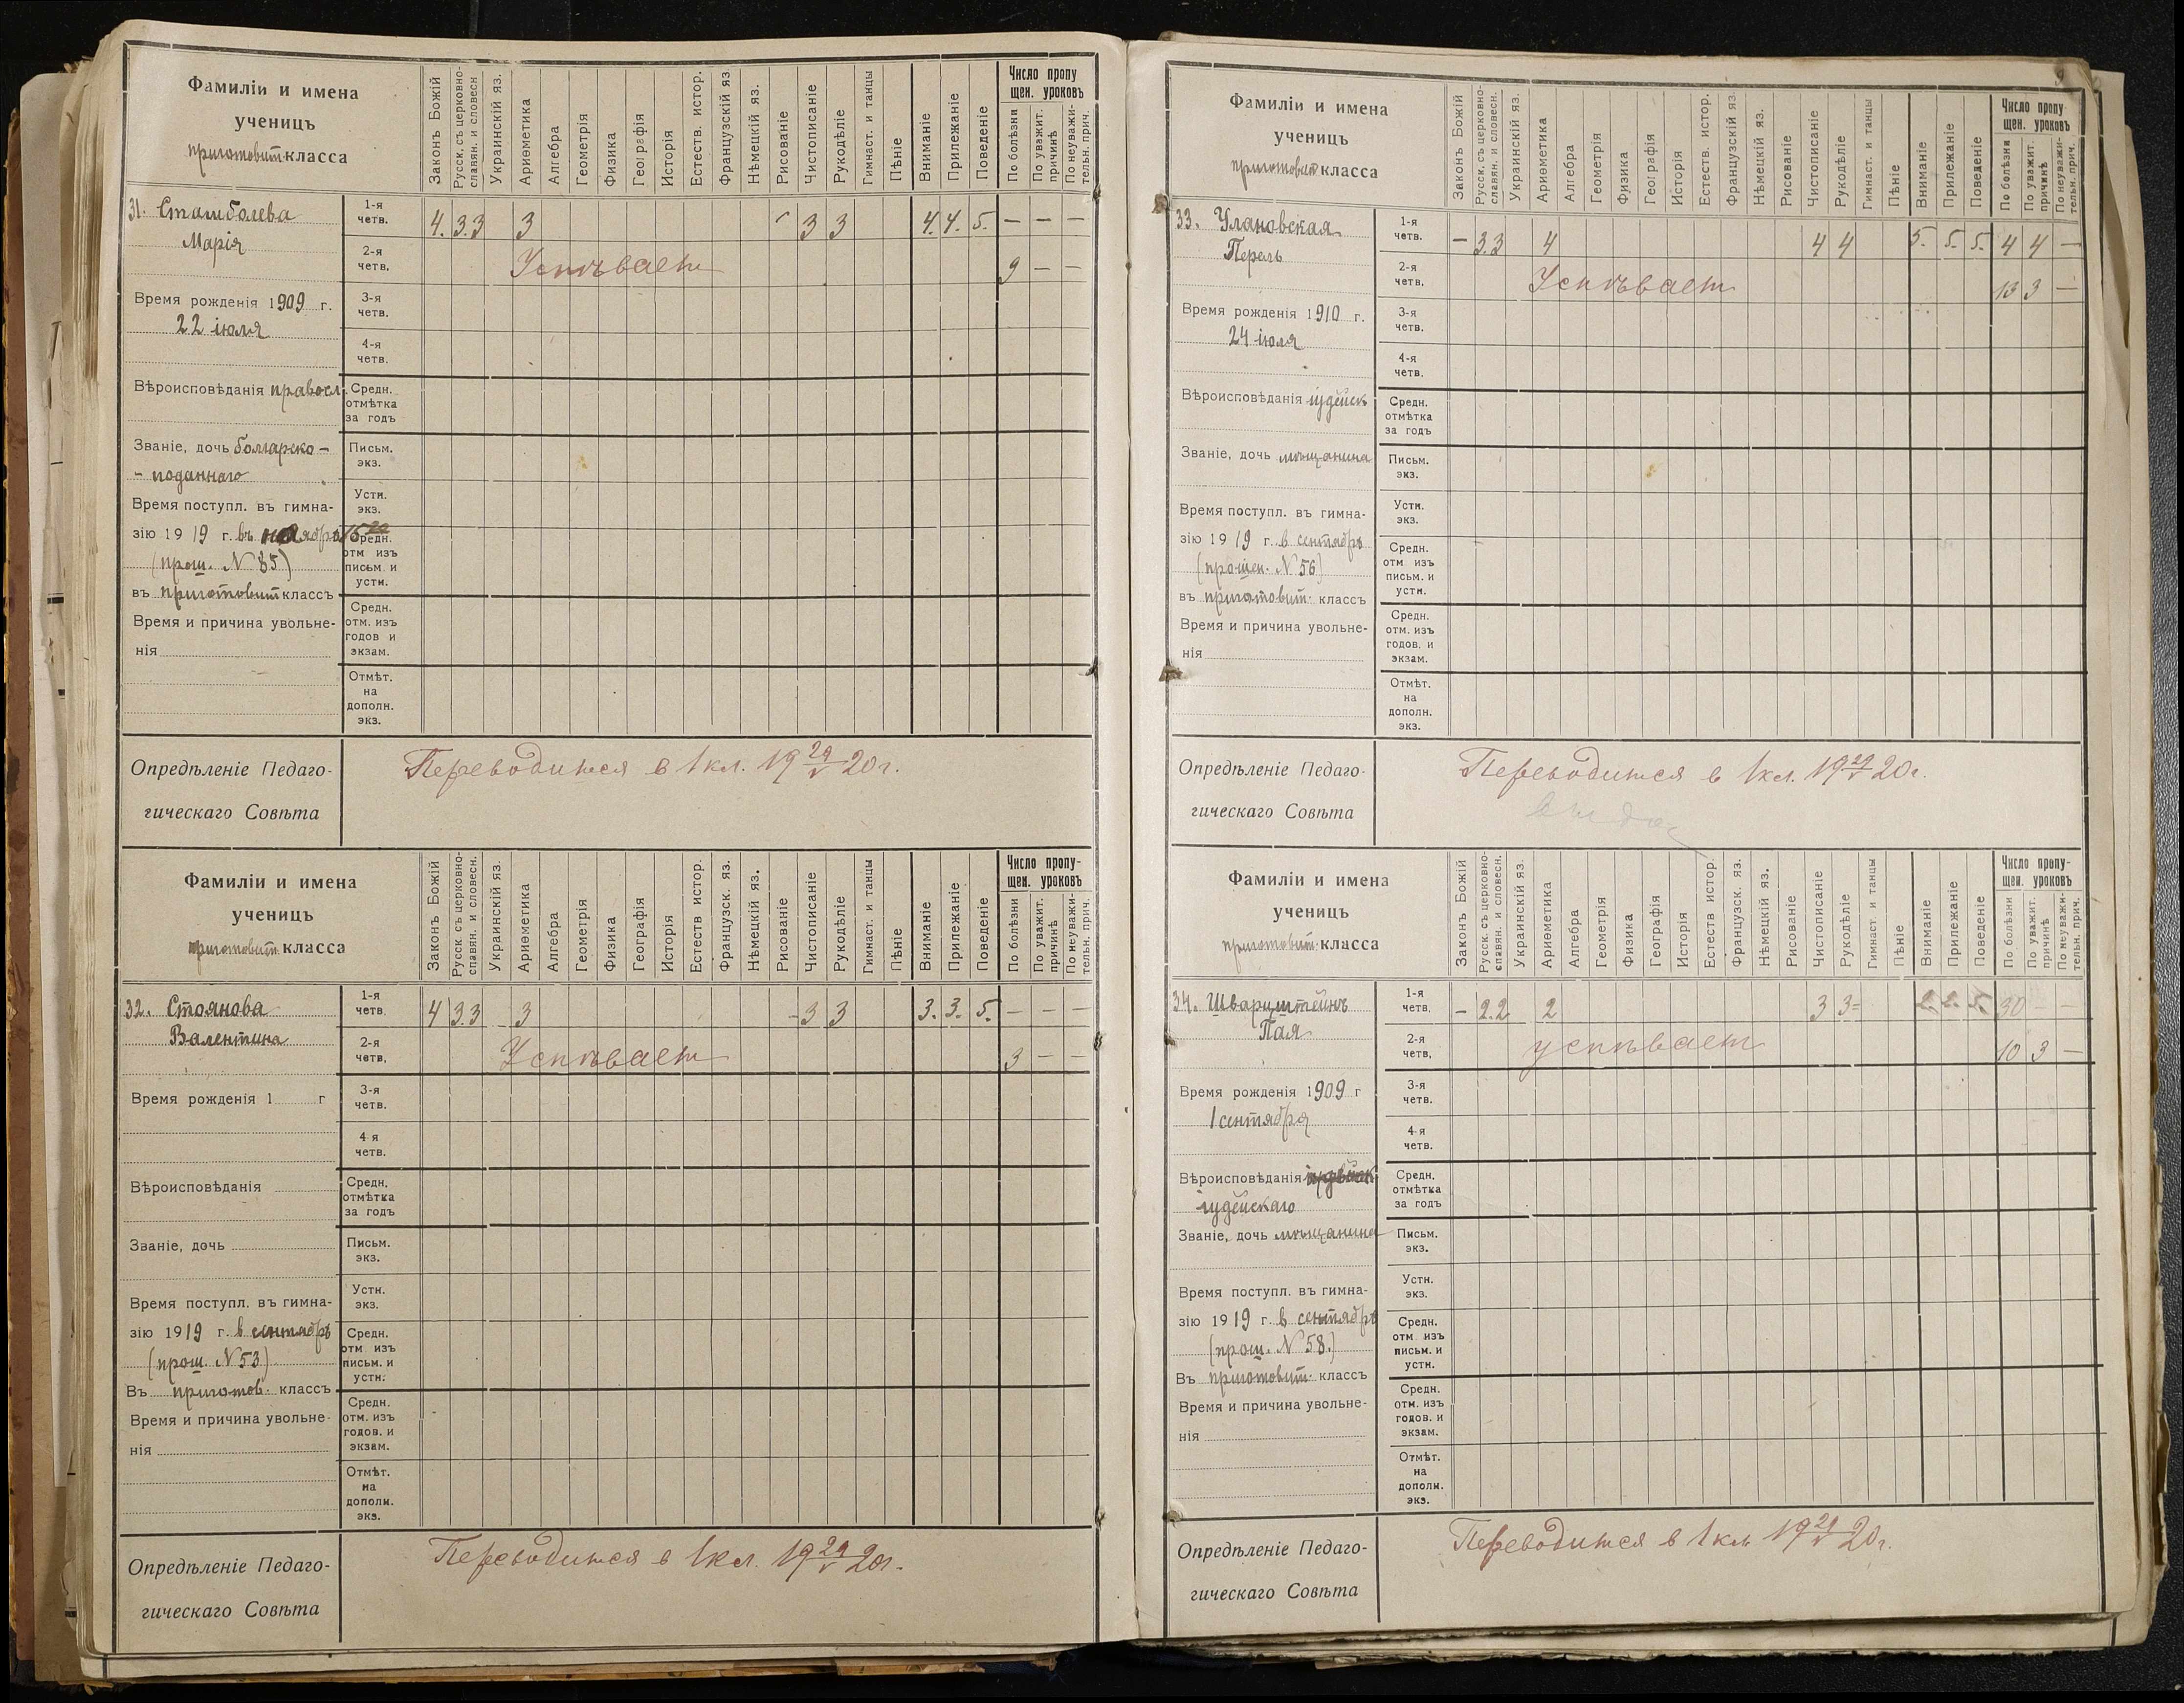 Фамиліи и имена
ученицъ
приготовит. класса
Законъ Божій
Русск. съ церковно-
славян. и словесн
Украинскій яз.
Ариѳметика
Алгебра
Геометрія
Физика
Географія
Исторія
Естеств. истор.
Французскій яз
Нѣмецкій яз.
Рисованіе
Чистописаніе
Рукодѣліе
Гимнаст. и танцы
Пѣніе
Вниманіе
Прилежаніе
Поведеніе
Число пропу
щен. уроковъ
По болѣзни
По уважит.
причинѣ
По неуважи-
тельн. прич.
31. Стамболева
Марія
1-я
четв. 4. 3.3 3 3 3 4. 4. 5. — — —
2-я
четв. Успѣвает 9 — —
Время рожденія 1909 г.
22 іюля
3-я
четв.
4-я
четв.
Вѣроисповѣданія правосл.
Средн.
отмѣтка
за годъ
Званіе, дочь болгарско-
- поданнаго
Письм.
экз.
Время поступл. въ гимна-
зію 1919 г. въ ноября 15
(прош. N 85)
въ приготовит классъ
Устн.
экз.
Средн.
отм изъ
письм. и
устн.
Время и причина увольне-
нія
Средн.
отм. изъ
годов и
экзам.
Отмѣт.
на
дополн.
экз.
Опредѣленіе Педаго-
гическаго Совѣта
Переводится в 1 кл. 19 29/V 20 г.
Фамиліи и имена
ученицъ
приготовит. класса
Законъ Божій
Русск. съ церковно-
славян. и словесн.
Украинскій яз.
Ариѳметика
Алгебра
Геометрія
Физика
Географія
Исторія
Естеств истор.
Французск. яз.
Нѣмецкій яз.
Рисованіе
Чистописаніе
Рукодѣліе
Гимнаст. и танцы
Пѣніе
Вниманіе
Прилежаніе
Поведеніе
Число пропу-
щен. уроковъ
По болѣзни
По уважит.
причинѣ
По неуважи-
тельн. прич.
32. Стоянова
Валентина
1-я
четв. 4 3.3 3 3 3 3. 3. 5. — — —
2-я
четв. Успѣвает 3 — —
Время рожденія 1 г
3-я
четв.
4-я
четв.
Вѣроисповѣданія
Средн.
отмѣтка
за годъ
Званіе, дочь
Письм.
экз.
Время поступл. въ гимна-
зію 1919 г. в сентябрѣ
(прош. N 53)
Въ приготов. классъ
Устн.
экз.
Средн.
отм изъ
письм. и
устн.
Время и причина увольне-
нія
Средн.
отм. изъ
годов. и
экзам.
Отмѣт.
на
дополн.
экз.
Опредѣленіе Педаго-
гическаго Совѣта
Переводится в 1 кл. 19 29/V 20 г.
Фамиліи и имена
ученицъ
приготовит класса
Законъ Божій
Русск. съ церковно-
славян. и словесн.
Украинскій яз.
Ариѳметика
Алгебра
Геометрія
Физика
Географія
Исторія
Естеств. истор.
Французскій яз
Нѣмецкій яз.
Рисованіе
Чистописаніе
Рукодѣліе
Гимнаст. и танцы
Пѣніе
Вниманіе
Прилежаніе
Поведеніе
Число пропу-
щен. уроковъ
По болѣзни
По уважит.
причинѣ
По неуважи-
тельн. прич.
33. Улановская
Перль
1-я
четв. — 3.3 4 4 4 5. 5. 5. 4 4 —
2-я
четв. Успѣвает 13 3 —
Время рожденія 1910 г.
24 іюля
3-я
четв.
4-я
четв.
Вѣроисповѣданія іудейск
Средн.
отмѣтка
за годъ
Званіе, дочь мѣщанина
Письм.
экз.
Время поступл. въ гимна-
зію 1919 г. в сентябрѣ
(прошен. N 56)
въ приготовит. классъ
Устн.
экз.
Средн.
отм изъ
письм. и
устн.
Время и причина увольне-
нія
Средн.
отм. изъ
годов. и
экзам.
Отмѣт.
на
дополн.
экз.
Опредѣленіе Педаго-
гическаго Совѣта
Переводится в 1 кл. 19 29/V 20 г.
Фамиліи и имена
ученицъ
приготовит. класса
Законъ Божій
Русск. съ церковно-
славян. и словесн.
Украинскій яз.
Ариѳметика
Алгебра
Геометрія
Физика
Географія
Исторія
Естеств истор.
Французск. яз.
Нѣмецкій яз.
Рисованіе
Чистописаніе
Рукодѣліе
Гимнаст. и танцы
Пѣніе
Вниманіе
Прилежаніе
Поведеніе
Число пропу-
щен. уроковъ
По болѣзни
По уважит.
причинѣ
По неуважи-
тельн. прич.
34. Шварцштейнъ
Пая
1-я
четв. — 2.2 2 3 3= 2. 2. 5. 30 — —
2-я
четв, успѣвает 10 3 —
Время рожденія 1909 г
1 сентября
3-я
четв.
4-я
четв.
Вѣроисповѣданія
іудейскаго
Средн.
отмѣтка
за годъ
Званіе, дочь мѣщанина
Письм.
экз.
Время поступл. въ гимна-
зію 1919 г. в сентябрѣ
(прош. N 58.)
Въ приготовит. классъ
Устн.
экз.
Средн.
отм. изъ
письм. и
устн.
Время и причина увольне-
нія
Средн.
отм. изъ
годов. и
экзам.
Отмѣт.
на
дополн.
экз.
Опредѣленіе Педаго-
гическаго Совѣта
Переводится в 1 кл. 19 29/V 20 г.